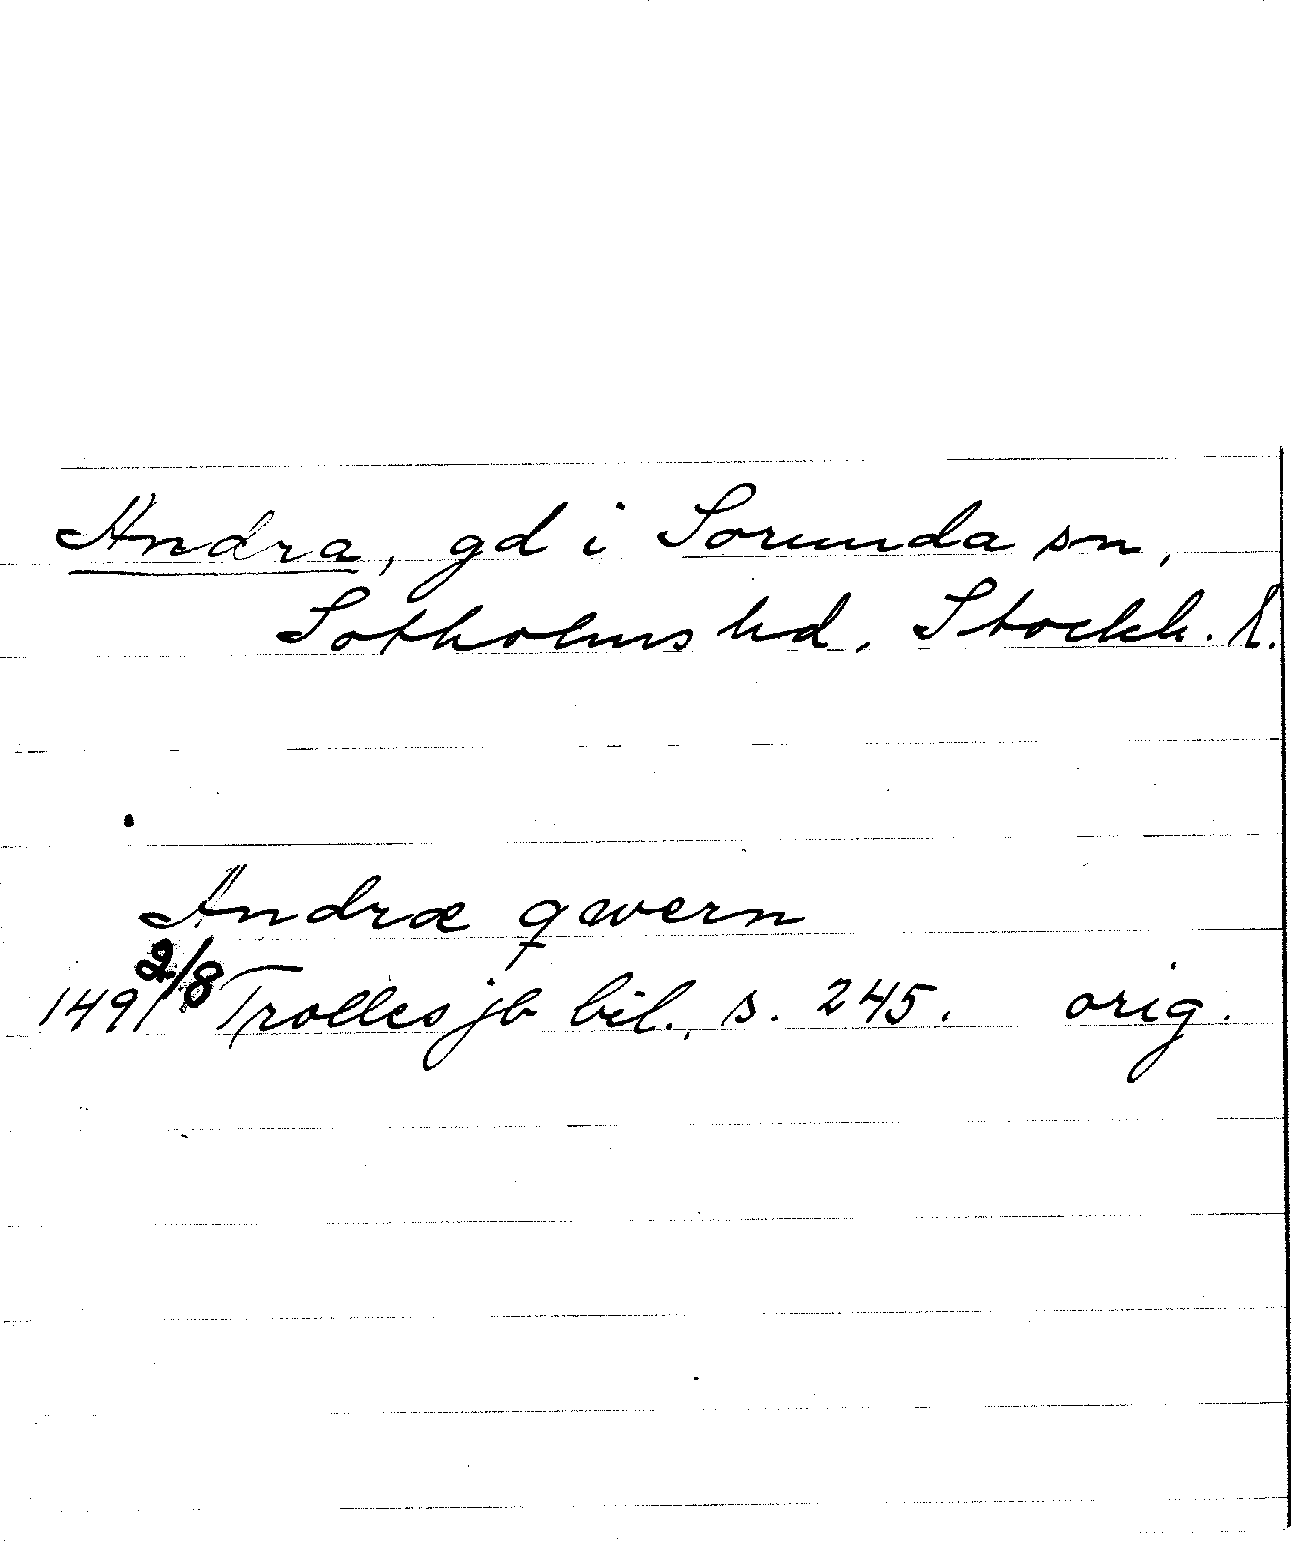 Andra, gd i Sorunda sn,
Sotholms hd. Stockh. l.
Andræ qwern
1491 2/8 Trolles jb bil., s. 245. orig.